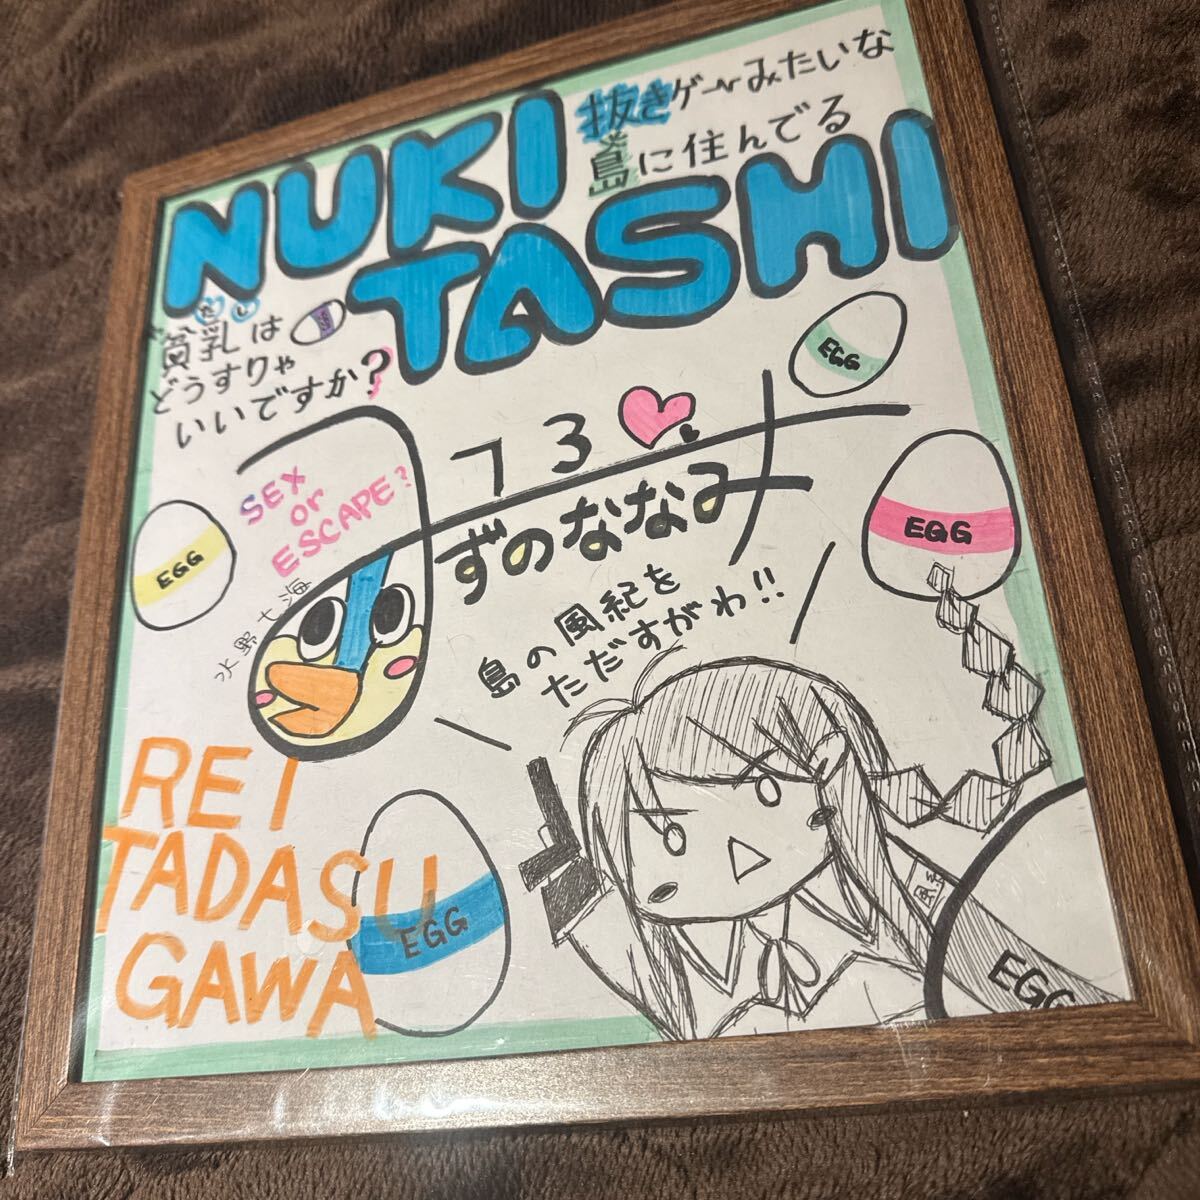 抜きゲーみたいな
島に住んでる
NUKI
TASHI
たし
貧乳は
どうすりゃ
いいですか?
EGG
73
SEX
or
ESCAPE?
ずのななみ
EGG
EGG
水野七海
島の風紀を
ただすがわ!!
REI
TADASU
GAWA
EGG
EGG